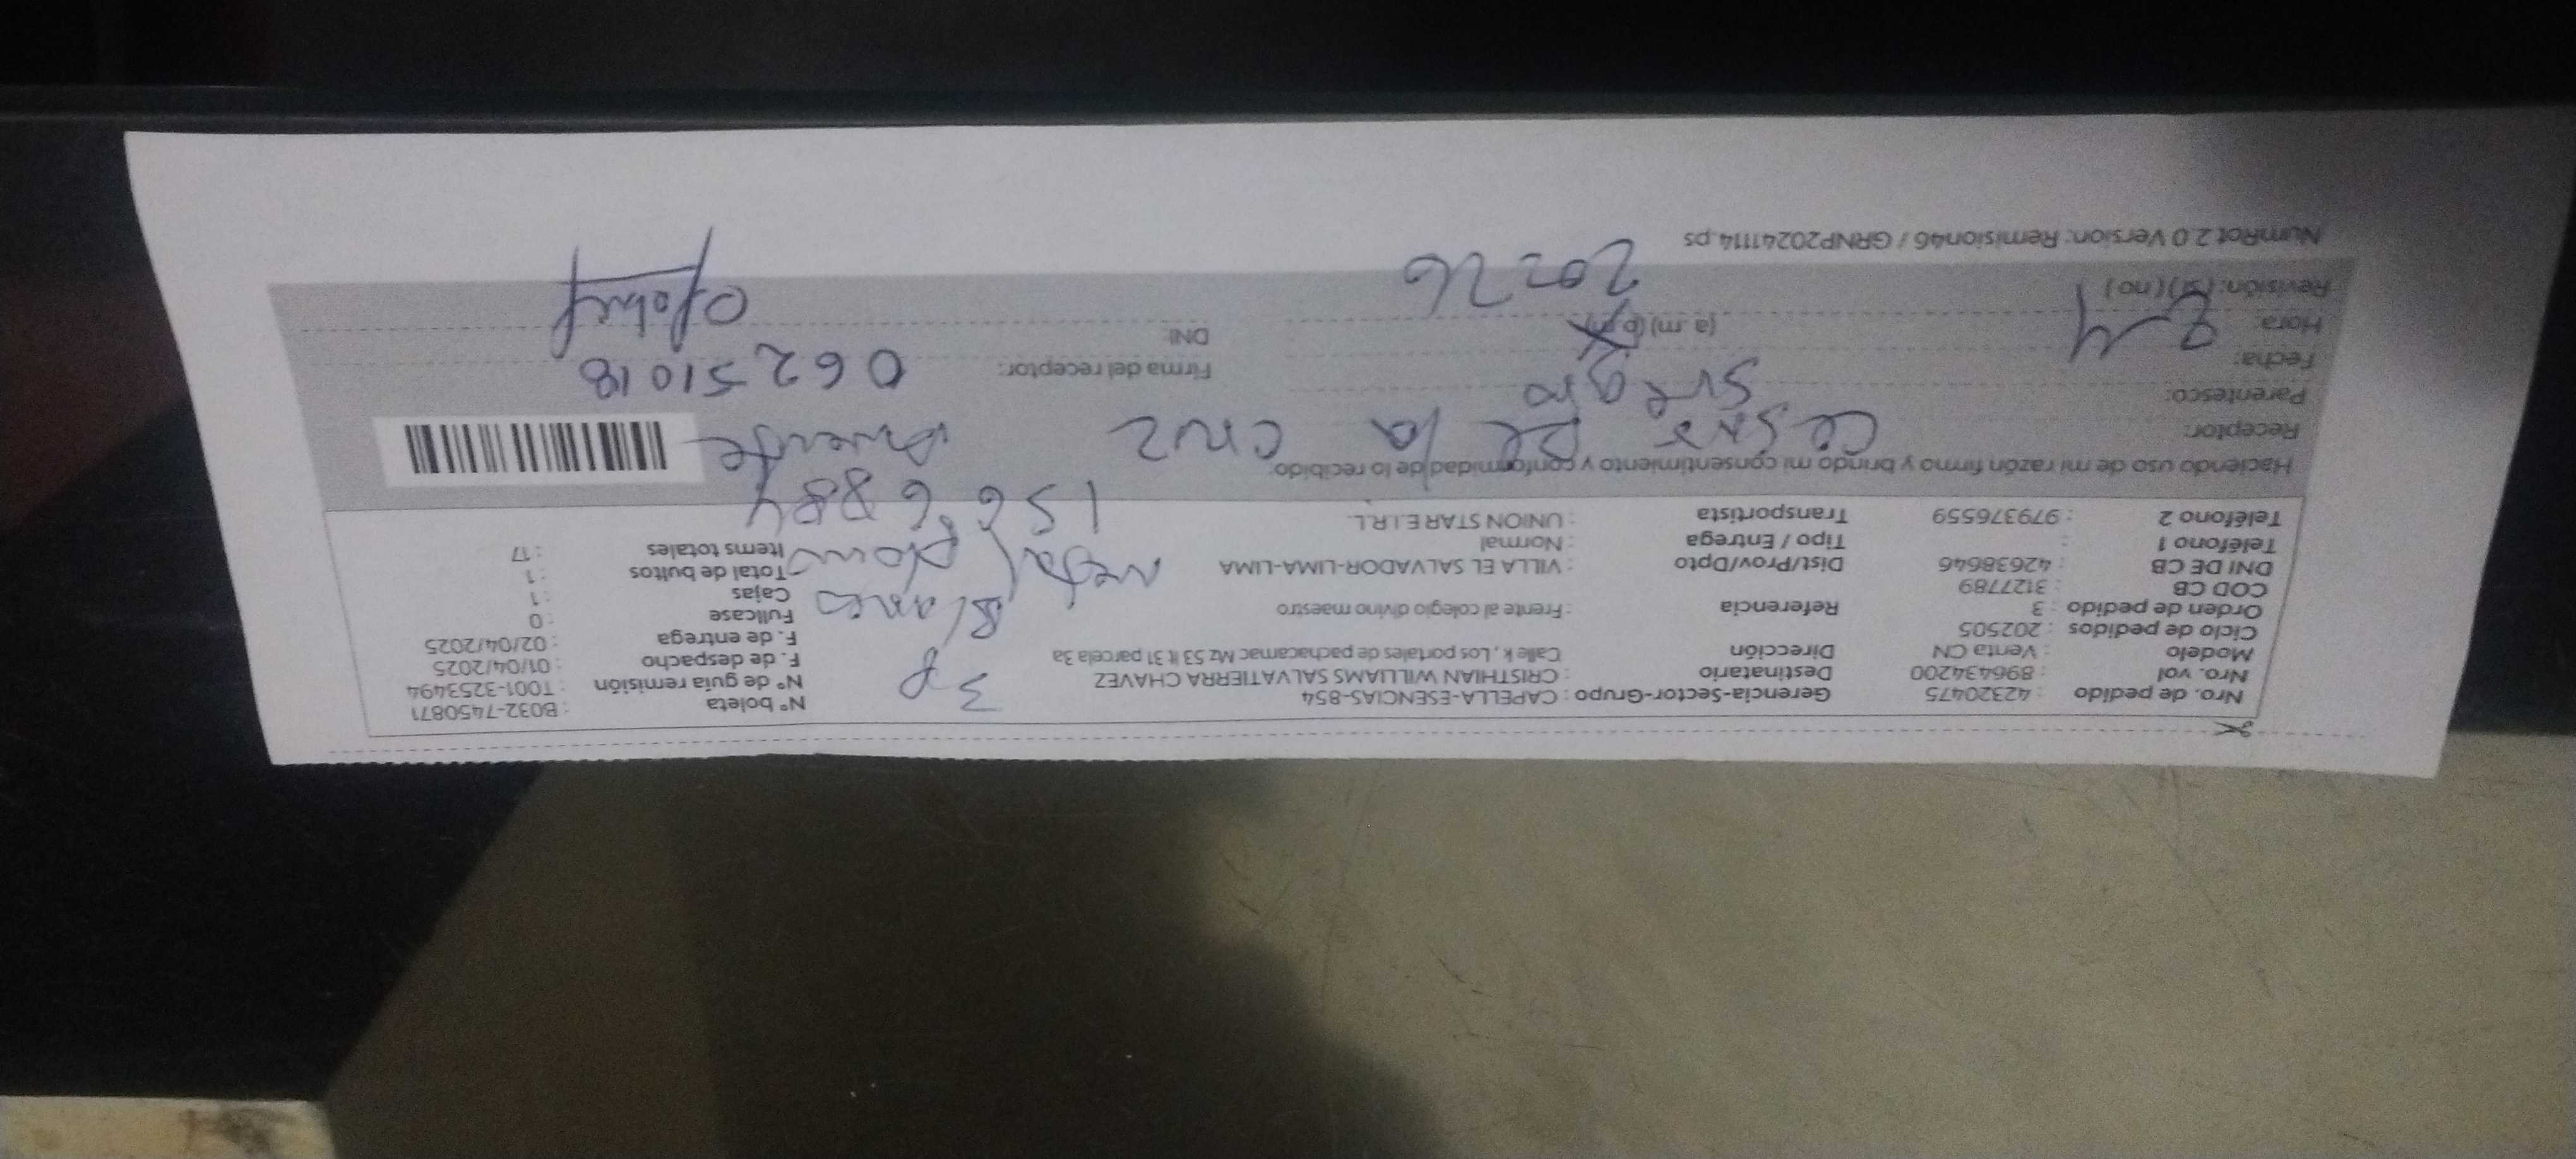 Nro. de pedido : 42320475 Gerencia-Sector-Grupo : CAPELLA-ESENCIAS-854 Nº boleta : B032-7450871
Nro. vol : 896434200 Destinatario : CRISTHIAN WILLIAMS SALVATIERRA CHAVEZ 3p Nº de guía remisión : T001-3253494
Modelo : Venta CN Dirección Calle k , Los portales de pachacamac Mz 53 lt 31 parcela 3a F. de despacho : 01/04/2025
Ciclo de pedidos : 202505 F. de entrega : 02/04/2025
Orden de pedido : 3 Referencia : Frente al colegio divino maestro Blanco Fullcase : 0
COD CB : 3127789 Cajas : 1
DNI DE CB : 42638646 Dist/Prov/Dpto : VILLA EL SALVADOR-LIMA-LIMA metal Total de bultos : 1
Teléfono 1 : Tipo / Entrega : Normal Plomo Items totales : 17
Teléfono 2 : 979376559 Transportista : UNION STAR E.I.R.L.
1566884
Haciendo uso de mi razón firmo y brindo mi consentimiento y conformidad de lo recibido:
Receptor: Cesar De la Cruz Puente
Parentesco: Suegro
Fecha: 2-4 Firma del receptor: 06251018
Hora: (a. m) (p. m) DNI:
Revisión: (si) (no) 20=26
NumRot 2.0 Version: Remision46 / GRNP20241114.ps